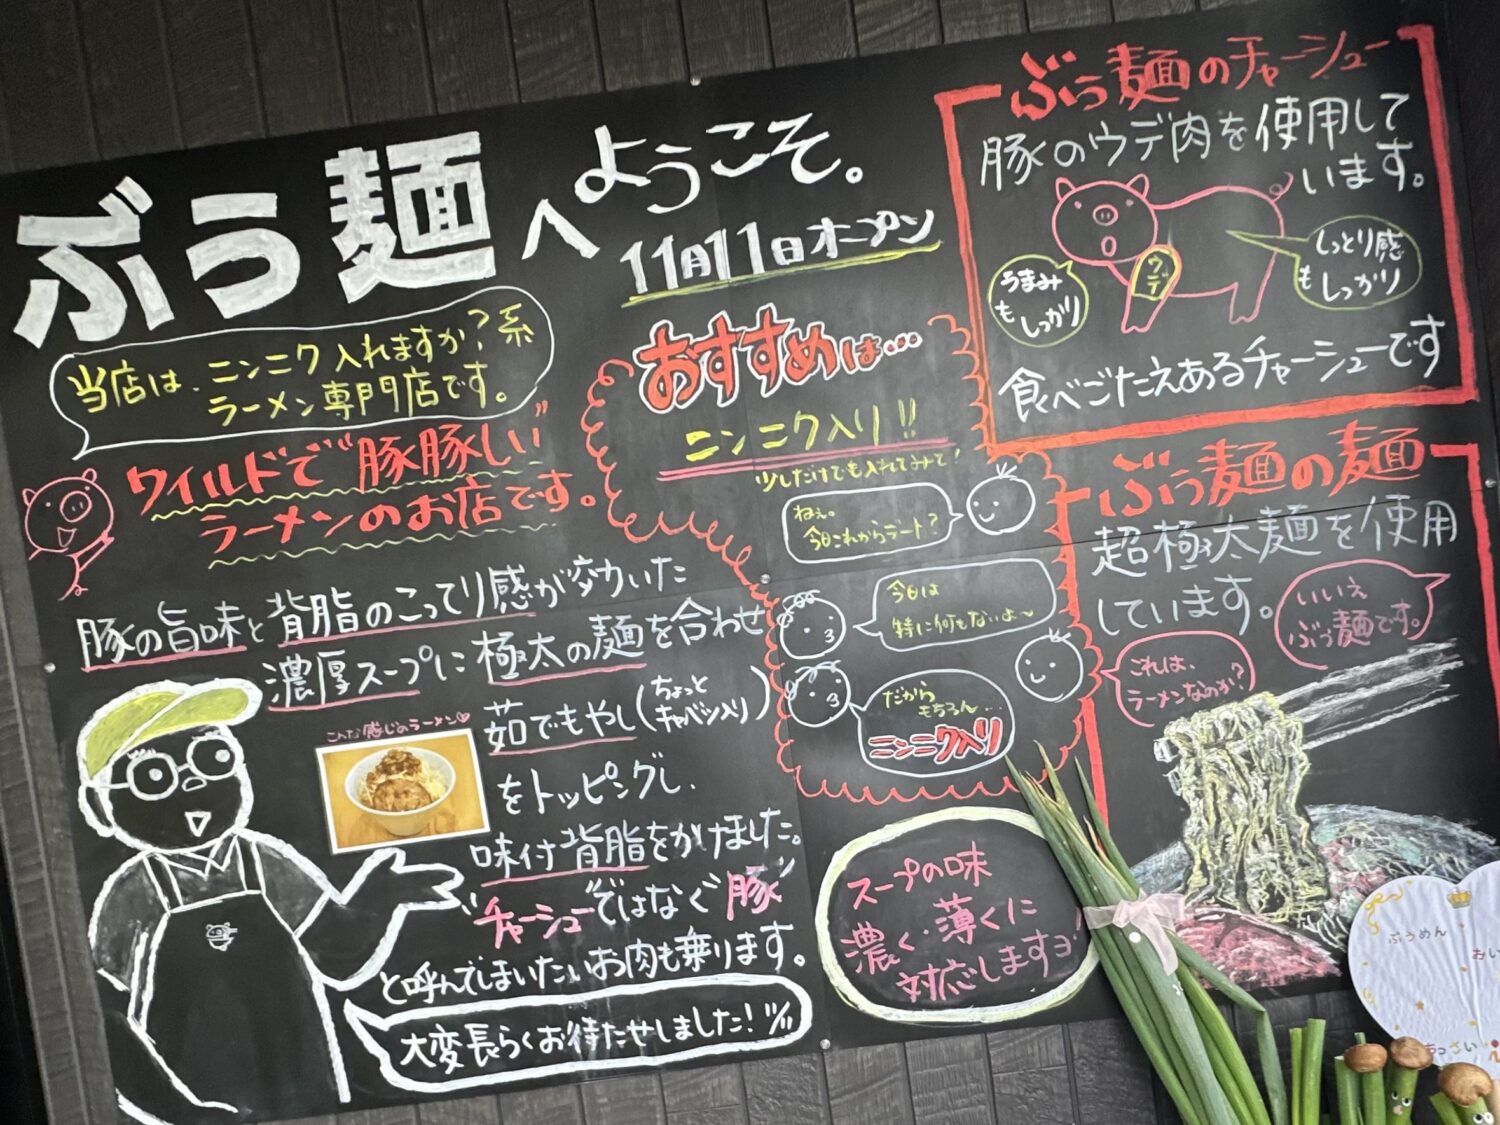 ぶぅ麺へようこそ。
11月11日オープン
当店は、ニンニク入れますか?系
ラーメン専門店です。
ワイルドで“豚豚しい”
ラーメンのお店です。
豚の旨味と背脂のこってり感が効いた
濃厚スープに極太の麺を合わせ
茹でもやし(ちょっと
キャベツ入り)
をトッピングし、
味付背脂をかけました。
“チャーシュー”ではなく“豚”
と呼んでしまいたいお肉も乗ります。
大変長らくお待たせしました!
こんな感じのラーメン♡
おすすめは…
ニンニク入り!!
少しだけでも入れてみて!
ねぇ。
今日これからデート?
今日は
特に何もないよ〜
だから
もちろん…
ニンニク入り
スープの味
濃く・薄くに
対応しますヨ!
ぶぅ麺のチャーシュー
豚のウデ肉を使用して
います。
ウデ
うまみ
も
しっかり
しっとり感
も
しっかり
食べごたえあるチャーシューです
ぶぅ麺の麺
超極太麺を使用
しています。
これは、
ラーメンなのか?
いいえ
ぶぅ麺です。
ぶぅめん